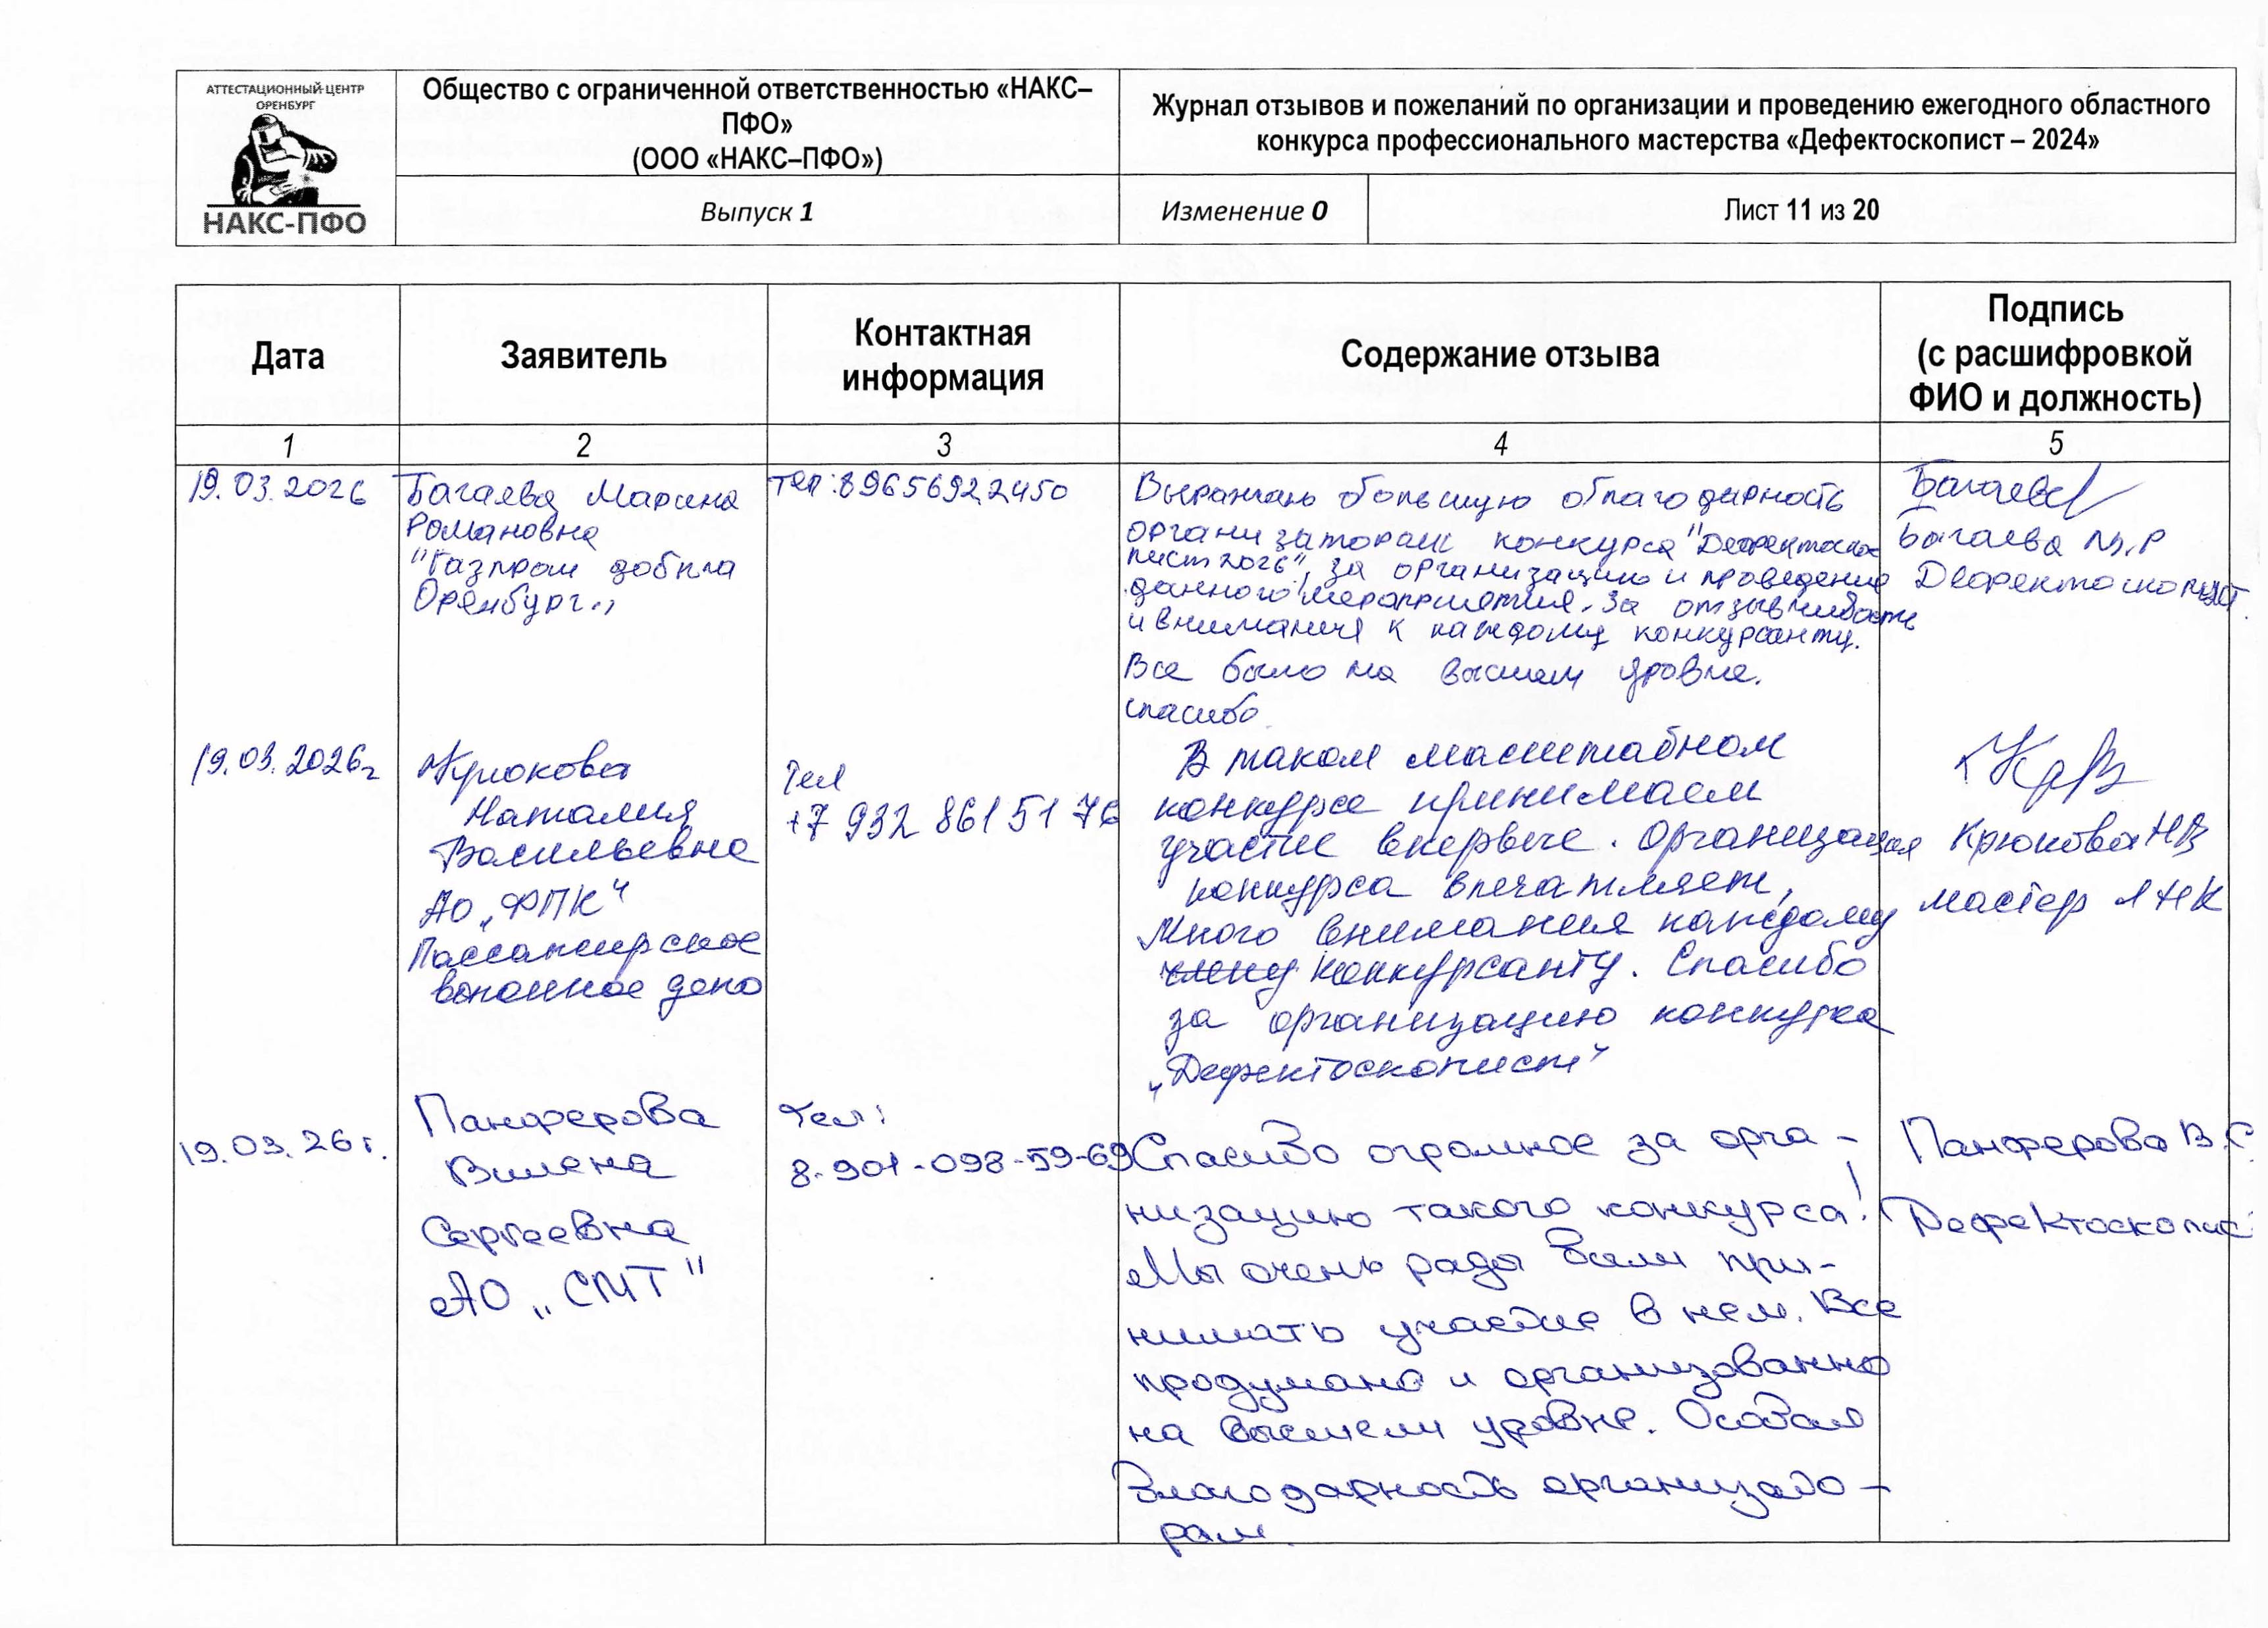 АТТЕСТАЦИОННЫЙ ЦЕНТР
ОРЕНБУРГ
НАКС-ПФО
Общество с ограниченной ответственностью «НАКС–
ПФО»
(ООО «НАКС–ПФО»)
Журнал отзывов и пожеланий по организации и проведению ежегодного областного
конкурса профессионального мастерства «Дефектоскопист – 2024»
Выпуск 1
Изменение 0
Лист 11 из 20
Дата
Заявитель
Контактная
информация
Содержание отзыва
Подпись
(с расшифровкой
ФИО и должность)
1
2
3
4
5
19.03.2026
Багаева Марина
Романовна
"Газпром добыча
Оренбург"
тел: 89656922450
Выражаю большую благодарность
организаторам конкурса "Дефектоско
пист 2026", за организацию и проведение
данного мероприятия, за отзывчивость
и внимания к каждому конкурсанту.
Все было на высшем уровне.
спасибо
Багаева
Багаева М.Р
Дефектоскопист.
19.03.2026г
Крюкова
Наталия
Васильевна
АО „ФПК"
Пассажирское
вагонное депо
Тел
+7 932 861 51 76
В таком масштабном
конкурсе принимаем
участие впервые. Организация
конкурса впечатляет,
Много внимания каждому
члену конкурсанту. Спасибо
за организацию конкурса
„Дефектоскопист"
Крюкова НВ
мастер ЛНК
19.03.26г.
Панферова
Вилена
Сергеевна
АО „СМТ"
Тел:
8-901-098-59-69
Спасибо огромное за орга-
низацию такого конкурса!
Мы очень рады были при-
нимать участие в нем. Все
продумано и организованно
на высшем уровне. Особая
благодарность организато-
рам.
Панферова В.С.
Дефектоскопист